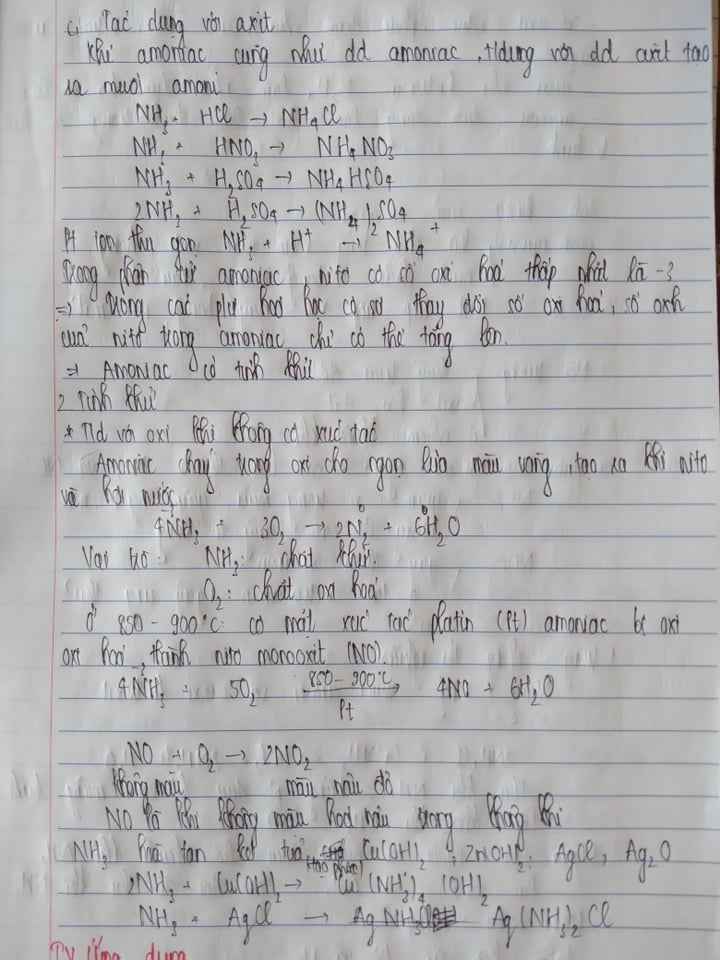 c) Tác dụng với axit
Khí amoniac cũng như dd amoniac, t/dụng với dd axit tạo
ra muối amoni
NH3 + HCl → NH4Cl
NH3 + HNO3 → NH4NO3
NH3 + H2SO4 → NH4HSO4
2NH3 + H2SO4 → (NH4)2SO4
Pt ion thu gọn NH3 + H+ → NH4+
Trong phân tử amoniac, nitơ có số oxi hoá thấp nhất là -3
⇒ Trong các pư hoá học có sự thay đổi số oxi hoá, số oxh
của nitơ trong amoniac chỉ có thể tăng lên.
⇒ Amoniac có tính khử
2 Tính khử
* T/d với oxi khi không có xúc tác
Amoniac cháy trong oxi cho ngọn lửa màu vàng, tạo ra khí nitơ
và hơi nước
4NH3 + 3O2 → 2N2 + 6H2O
Vai trò: NH3: chất khử.
O2: chất oxi hoá
Ở 850 - 900°C có mặt xúc tác platin (Pt) amoniac bị oxi
oxi hoá, thành nitơ monooxit (NO).
4NH3 + 5O2 → 4NO + 6H2O
850 - 900°C
Pt
NO + O2 → 2NO2
không màu màu nâu đỏ
NO là khí không màu hoá nâu trong không khí
NH3 hoà tan kết tủa Cu(OH)2, Zn(OH)2, AgCl, Ag2O
(tạo phức)
2NH3 + Cu(OH)2 → Cu(NH3)4(OH)2
NH3 + AgCl → Ag NH3 Ag(NH3)2Cl
IV Ứng dụng